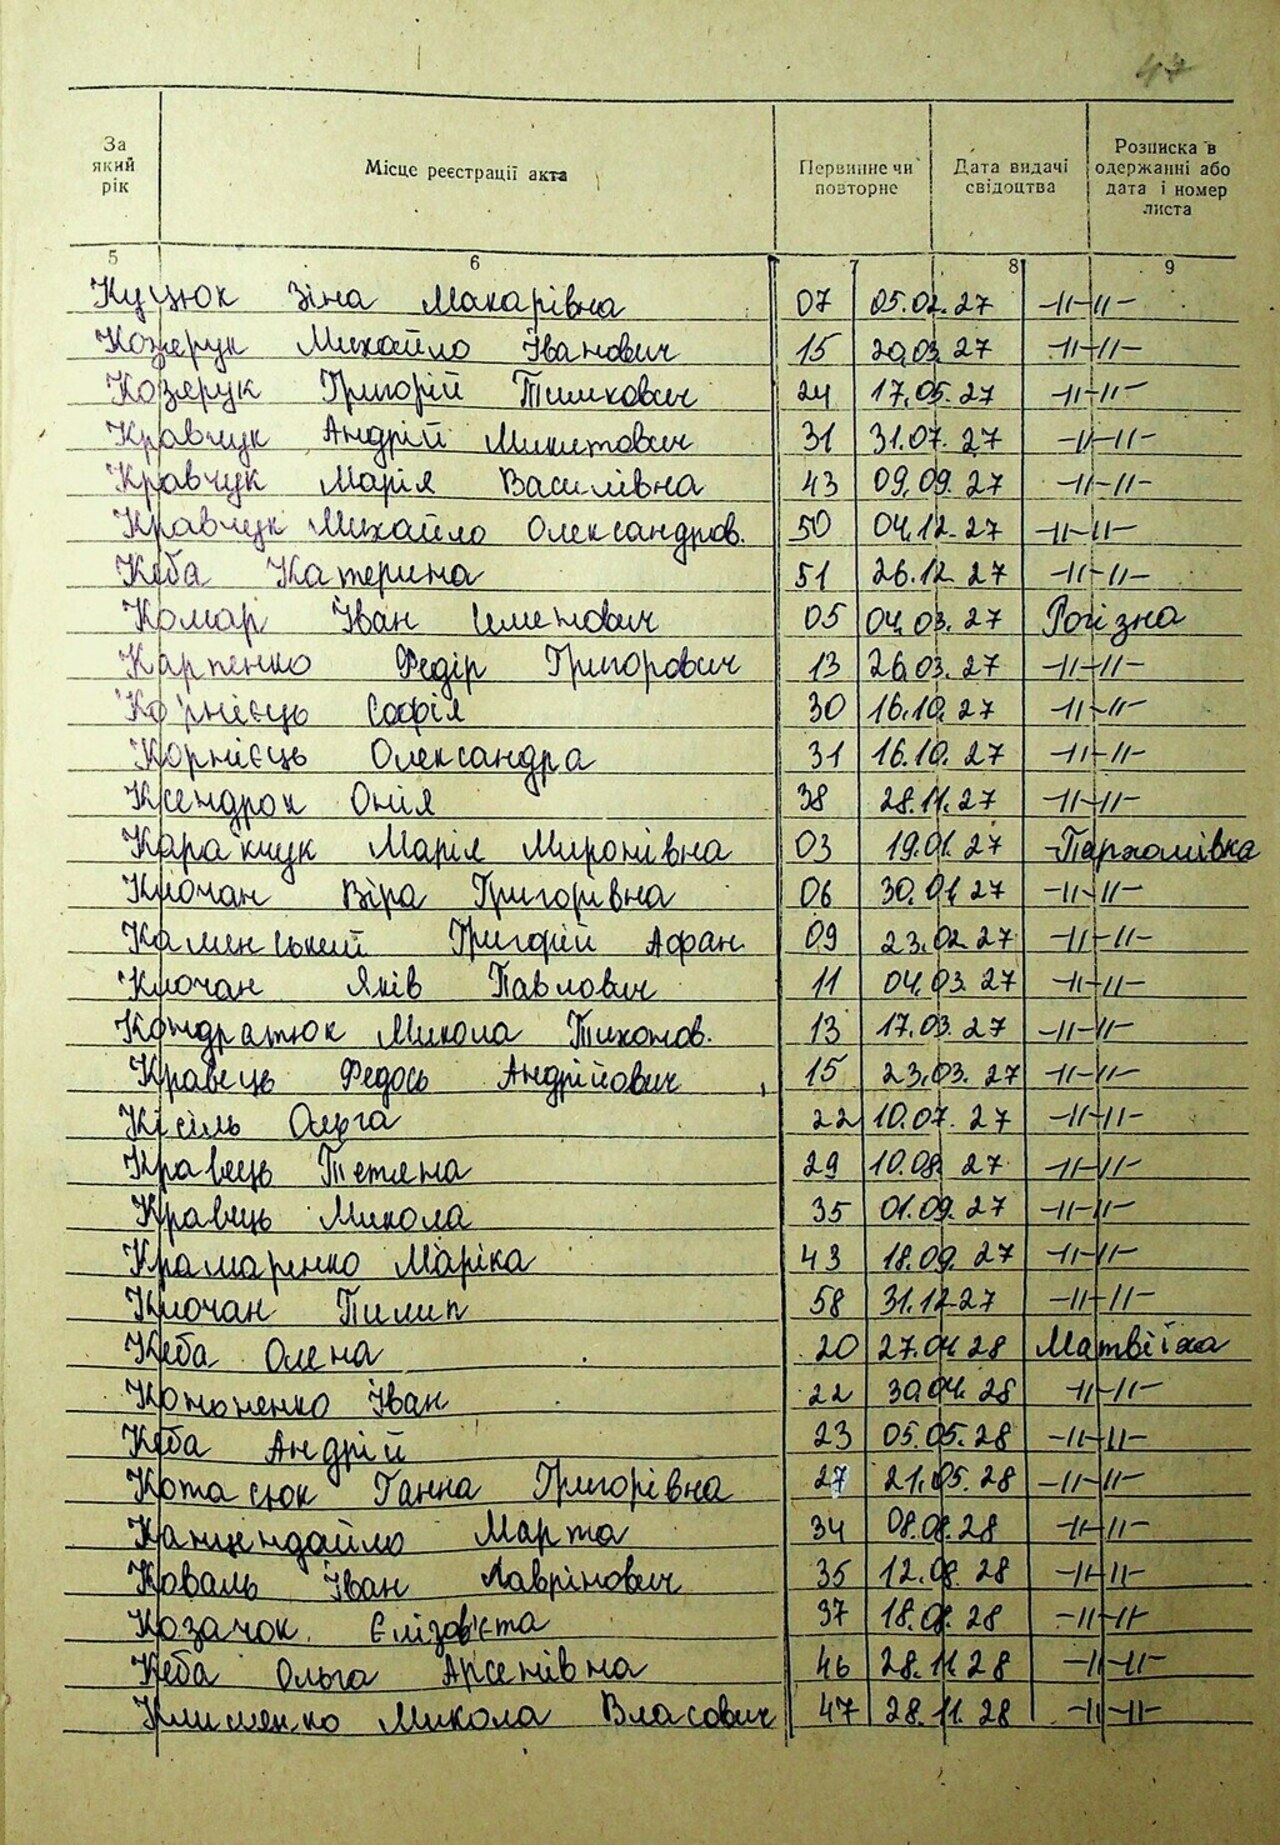 47
За який рік Місце реєстрації акта Первинне чи повторне Дата видачі свідоцтва Розписка в одержанні або дата і номер листа
5 6 7 8 9
Куцюк Зіна Макарівна 07 05.02.27 -//-//-
Козерук Михайло Іванович 15 20.03.27 -//-//-
Козерук Григорій Тимкович 24 17.05.27 -//-//-
Кравчук Андрій Микитович 31 31.07.27 -//-//-
Кравчук Марія Василівна 43 09.09.27 -//-//-
Кравчук Михайло Олександров. 50 04.12.27 -//-//-
Кеба Катерина 51 26.12.27 -//-//-
Комар Іван Семенович 05 04.03.27 Рогізна
Карпенко Федір Григорович 13 26.03.27 -//-//-
Корнієць Софія 30 16.10.27 -//-//-
Корнієць Олександра 31 16.10.27 -//-//-
Ксендрок Онія 38 28.11.27 -//-//-
Каракчук Марія Миронівна 03 19.01.27 Пархомівка
Клочан Віра Григорівна 06 30.01.27 -//-//-
Каменський Григорій Афан. 09 23.02.27 -//-//-
Клочан Яків Павлович 11 04.03.27 -//-//-
Кондратюк Микола Тихонов. 13 17.03.27 -//-//-
Кравець Федось Андрійович 15 23.03.27 -//-//-
Кісіль Ольга 22 10.07.27 -//-//-
Кравець Тетяна 29 10.08.27 -//-//-
Кравець Микола 35 01.09.27 -//-//-
Крамаренко Маріка 43 18.09.27 -//-//-
Клочан Пилип 58 31.12.27 -//-//-
Кеба Олена 20 27.04.28 Матвіїха
Кононенко Іван 22 30.04.28 -//-//-
Кеба Андрій 23 05.05.28 -//-//-
Котасюк Ганна Григорівна 27 21.05.28 -//-//-
Канцендайло Марта 34 08.08.28 -//-//-
Коваль Іван Лаврінович 35 12.08.28 -//-//-
Козачок Єлізов'єта 37 18.08.28 -//-//-
Кеба Ольга Арсенівна 46 28.11.28 -//-//-
Клименко Микола Власович 47 28.11.28 -//-//-